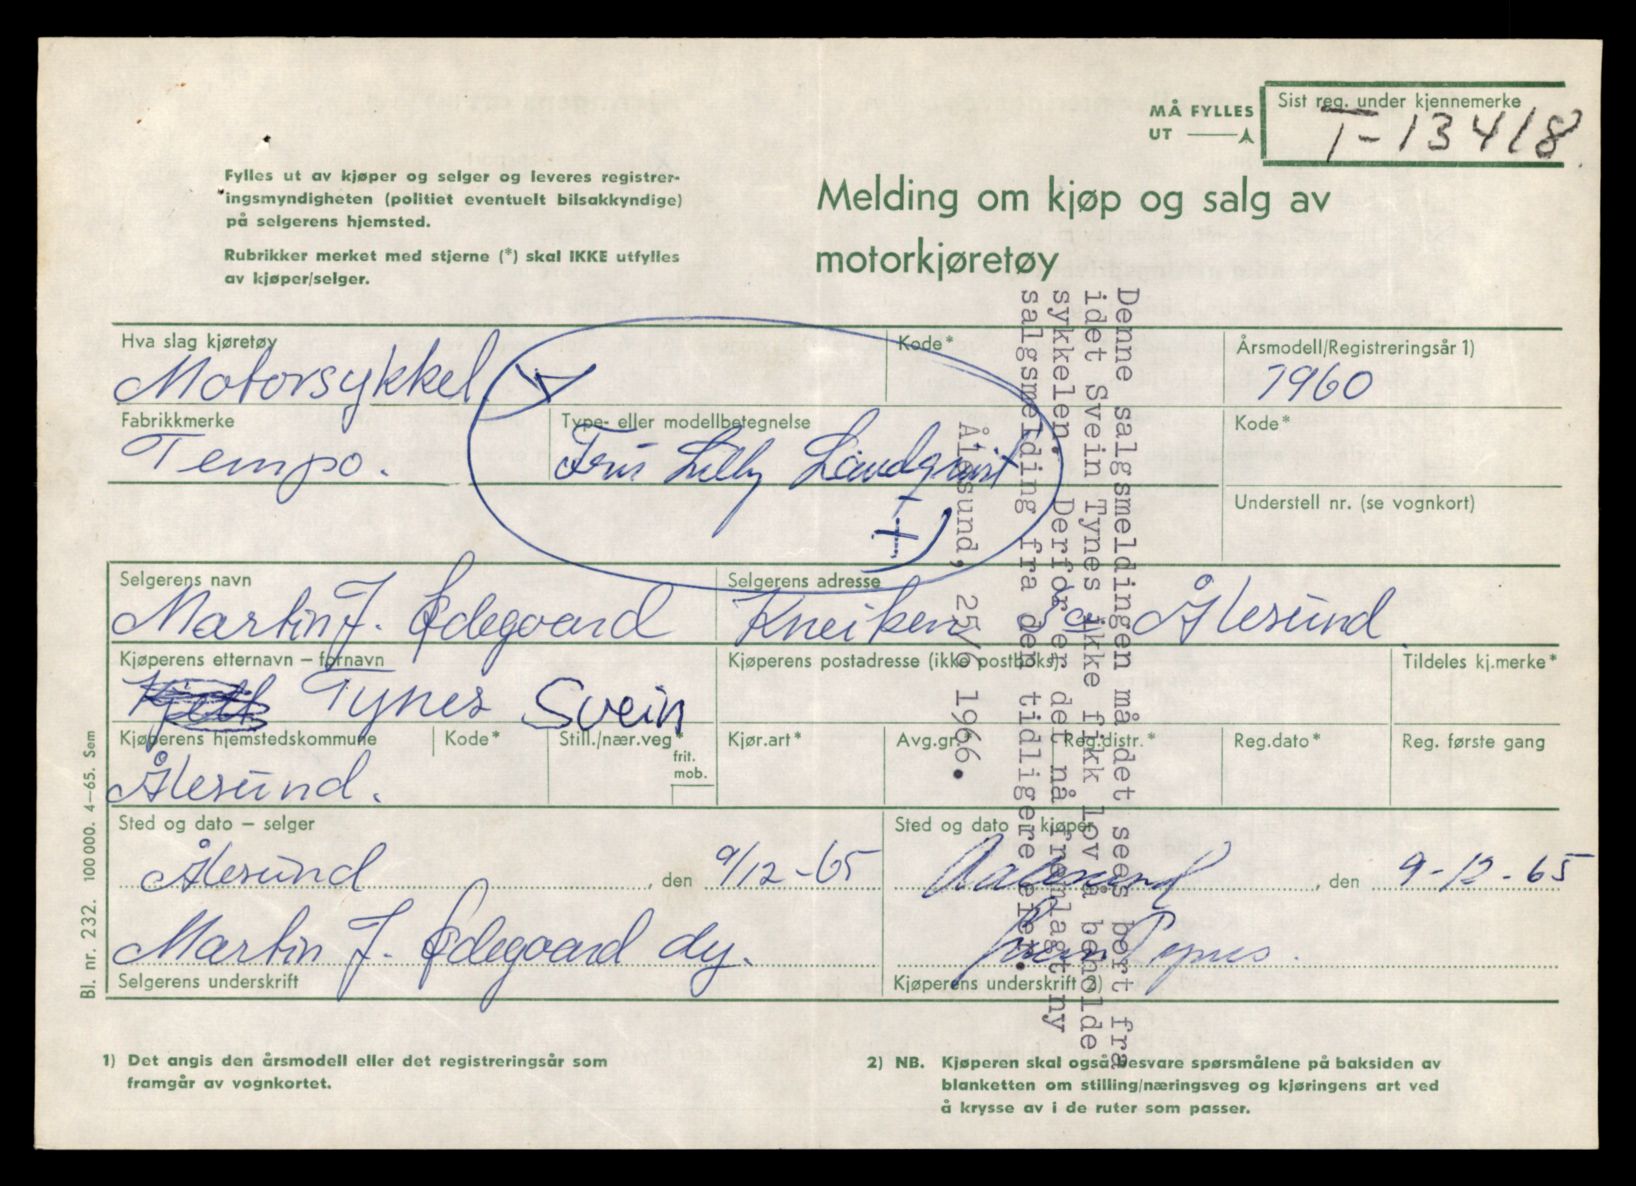 MÅ FYLLES
UT
Sist reg. under kjennemerke
T-13418
Fylles ut av kjøper og selger og leveres registrer-
ingsmyndigheten (politiet eventuelt bilsakkyndige)
på selgerens hjemsted.
Rubrikker merket med stjerne (*) skal IKKE utfylles
av kjøper/selger.
Melding om kjøp og salg av
motorkjøretøy
Hva slag kjøretøy
Motorsykkel
Kode*
Årsmodell/Registreringsår 1)
1960
Fabrikkmerke
Tempo.
Type- eller modellbetegnelse
Lilly Landqvist
Kode*
Understell nr. (se vognkort)
Selgerens navn
Martin J. Ødegaard
Selgerens adresse
Kneiken Ålesund
Kjøperens etternavn – fornavn
Tynes Svein
Kjøperens postadresse (ikke postboks)
Tildeles kj.merke*
Kjøperens hjemstedskommune
Ålesund.
Kode*
Still./nær.veg*
frit.
mob.
Kjør.art*
Avg.gr.
Reg.distr.*
Reg.dato*
Reg. første gang
Sted og dato – selger
Ålesund, den 9/12-65
Sted og dato – kjøper
Aalesund, den 9-12-65
Martin J. Ødegaard
Selgerens underskrift
Svein Tynes.
Kjøperens underskrift 2)
1) Det angis den årsmodell eller det registreringsår som
framgår av vognkortet.
2) NB. Kjøperen skal også besvare spørsmålene på baksiden av
blanketten om stilling/næringsveg og kjøringens art ved
å krysse av i de ruter som passer.
Bl. nr. 232. 100 000. 4–65. Sem
Denne salgsmeldingen må det sees bort fra
idet Svein Tynes ikke fikk lov å beholde
sykkelen. Derfor er det nå fremlagt ny
salgsmelding fra den tidligere eier.
Ålesund, 25/6 1966.